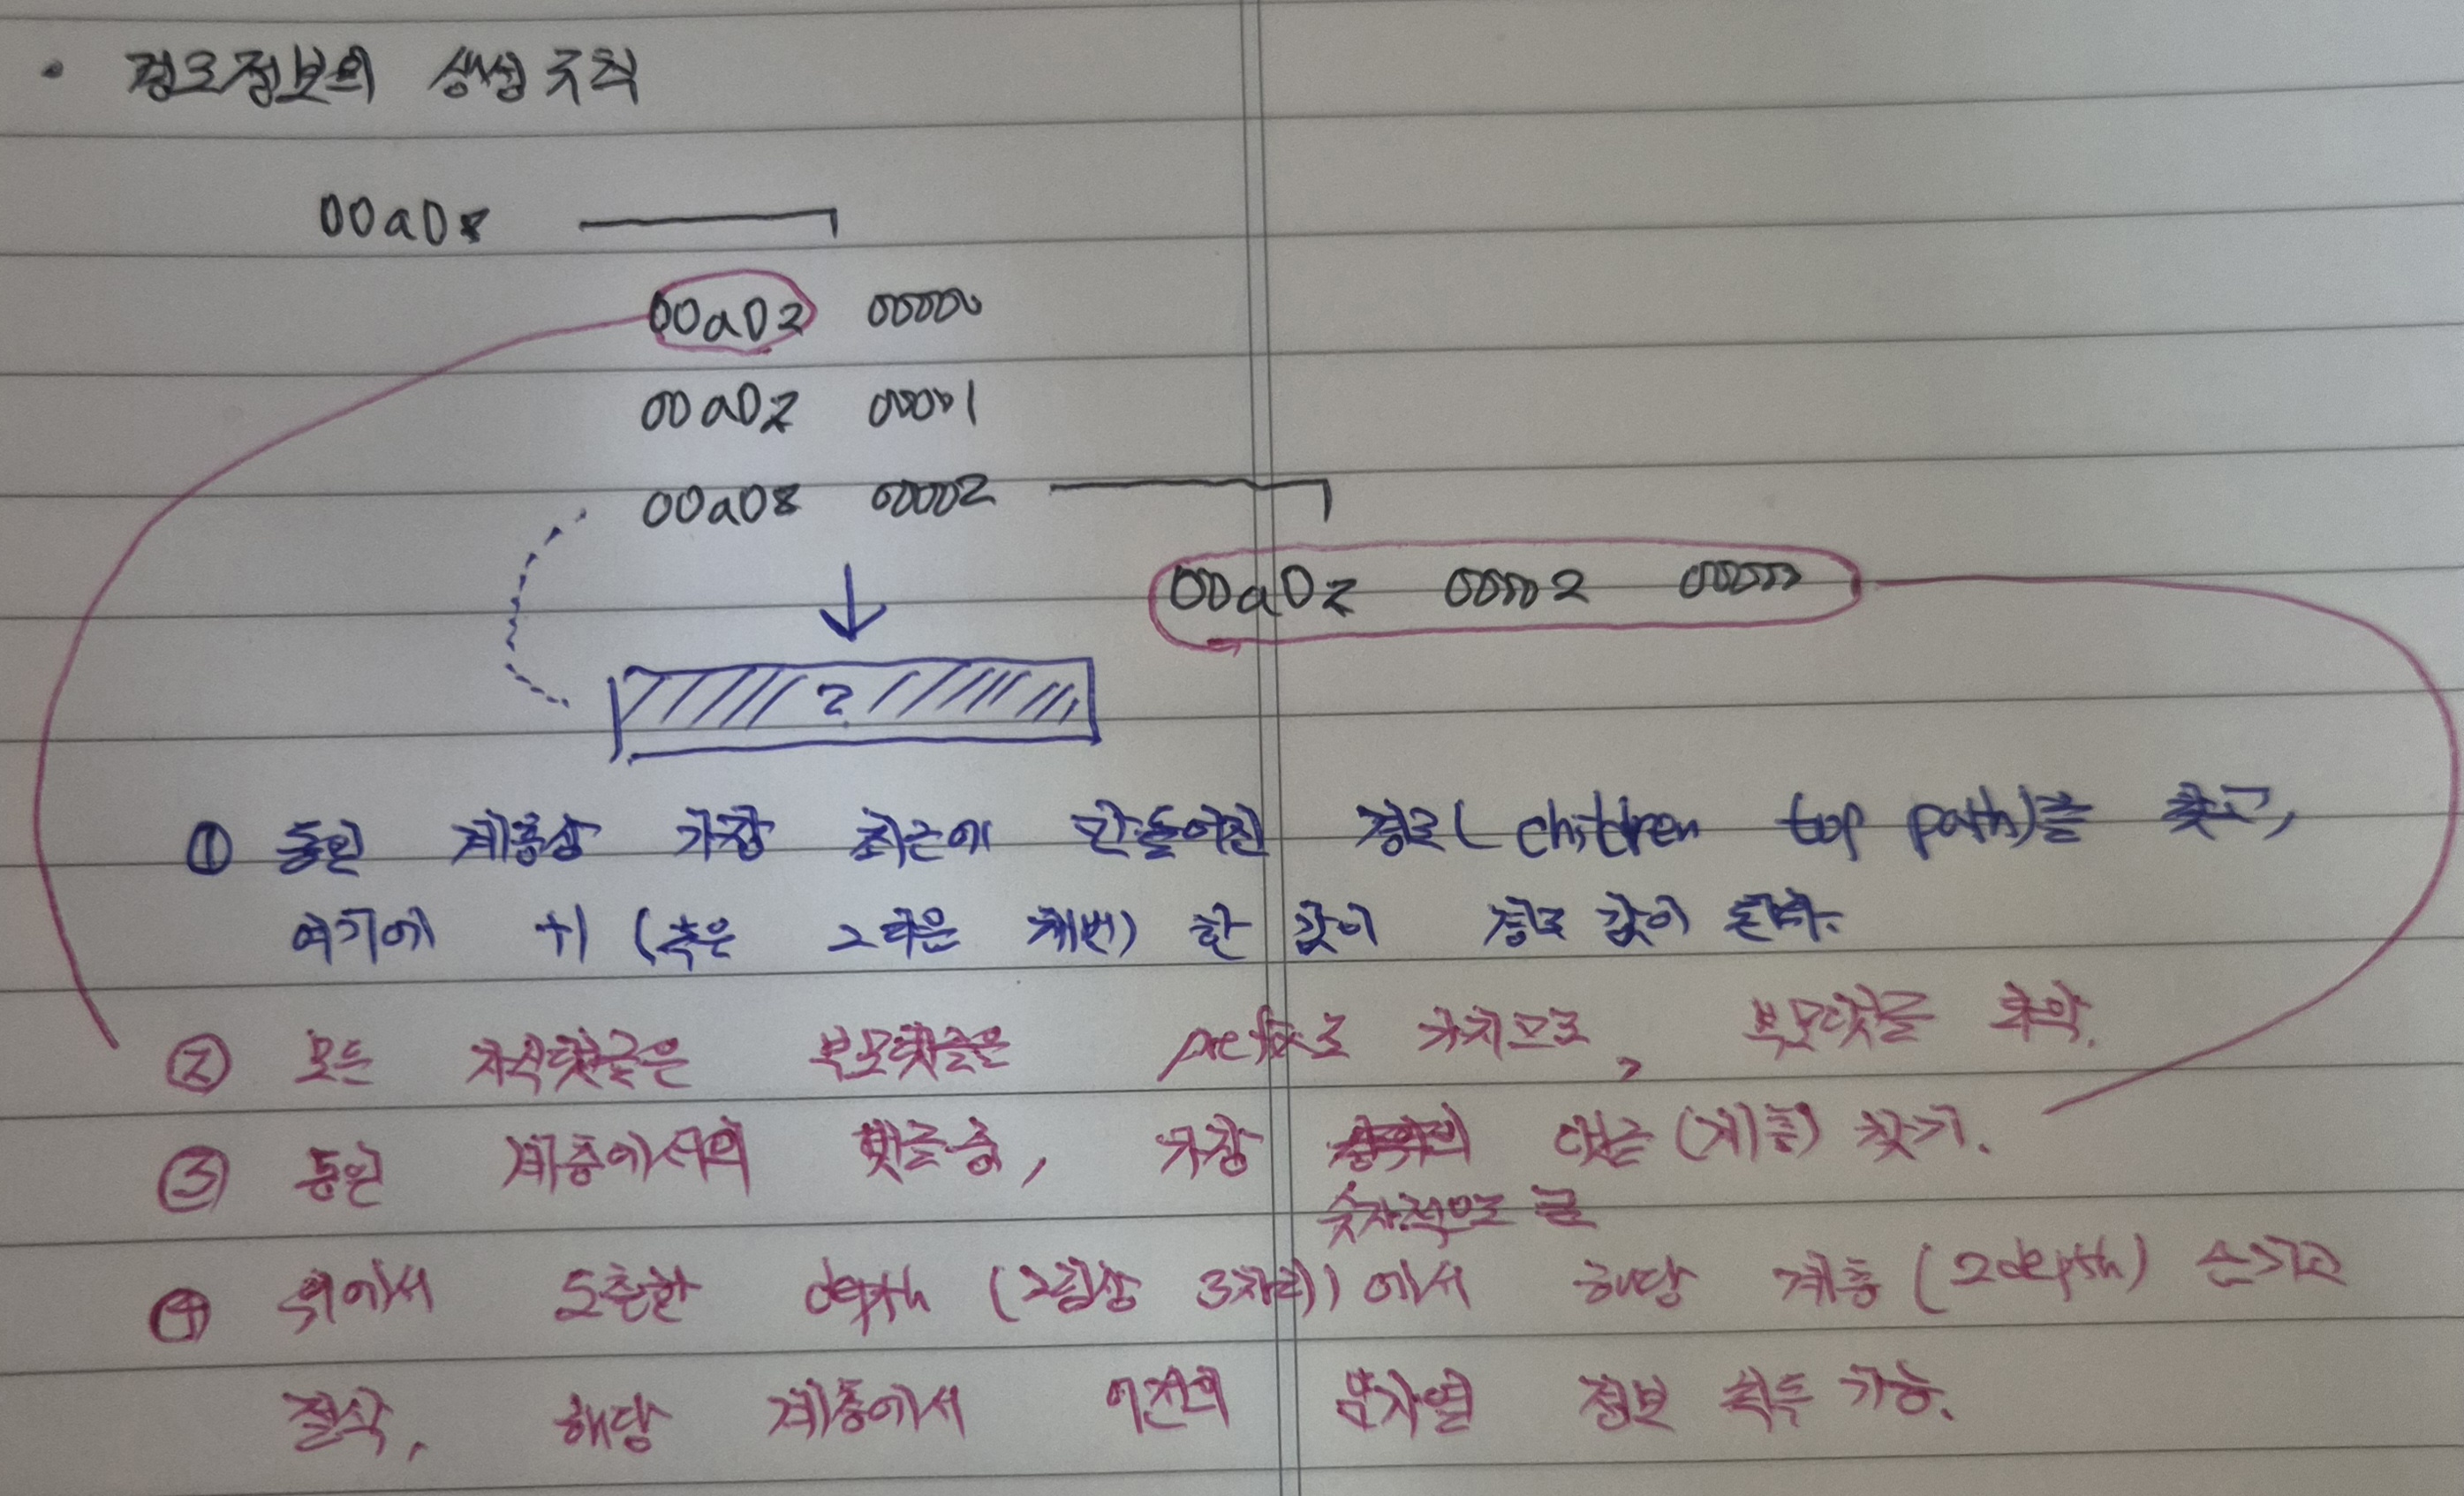 • 경로정보의 생성 규칙
00a0z
00a0z 00000
00a0z 00001
00a0z 00002
00a0z 00002 00000
?
① 동일 계층상 가장 최근에 만들어진 경로(children top path)를 찾고,
여기에 +1 (혹은 그 다음 채번) 한 값이 경로 값이 된다.
② 모든 자식댓글은 부모댓글은 prefix로 가지므로, 부모댓글 파악.
③ 동일 계층에서의 댓글 중, 가장 댓글(계층) 찾기.
숫자적으로 큰
④ 위에서 도출한 depth (그림상 3자리) 에서 해당 계층 (2depth) 남기고
절삭, 해당 계층에서 이전의 문자열 정보 취득 가능.